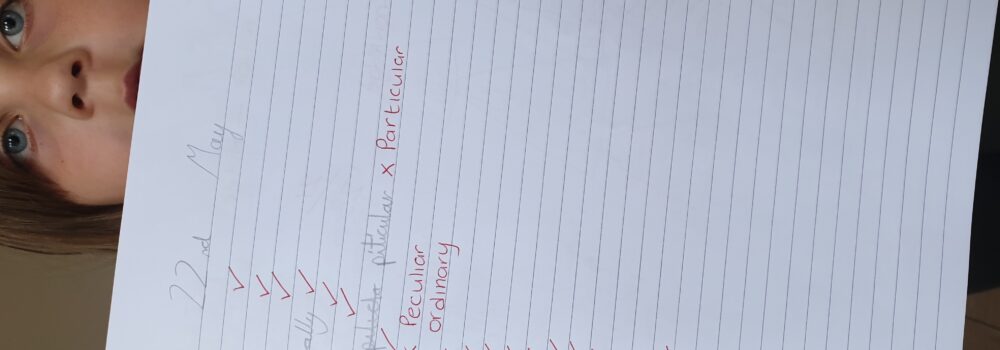 22nd May
ally
piticular x Particular
Peculiar
ordinary